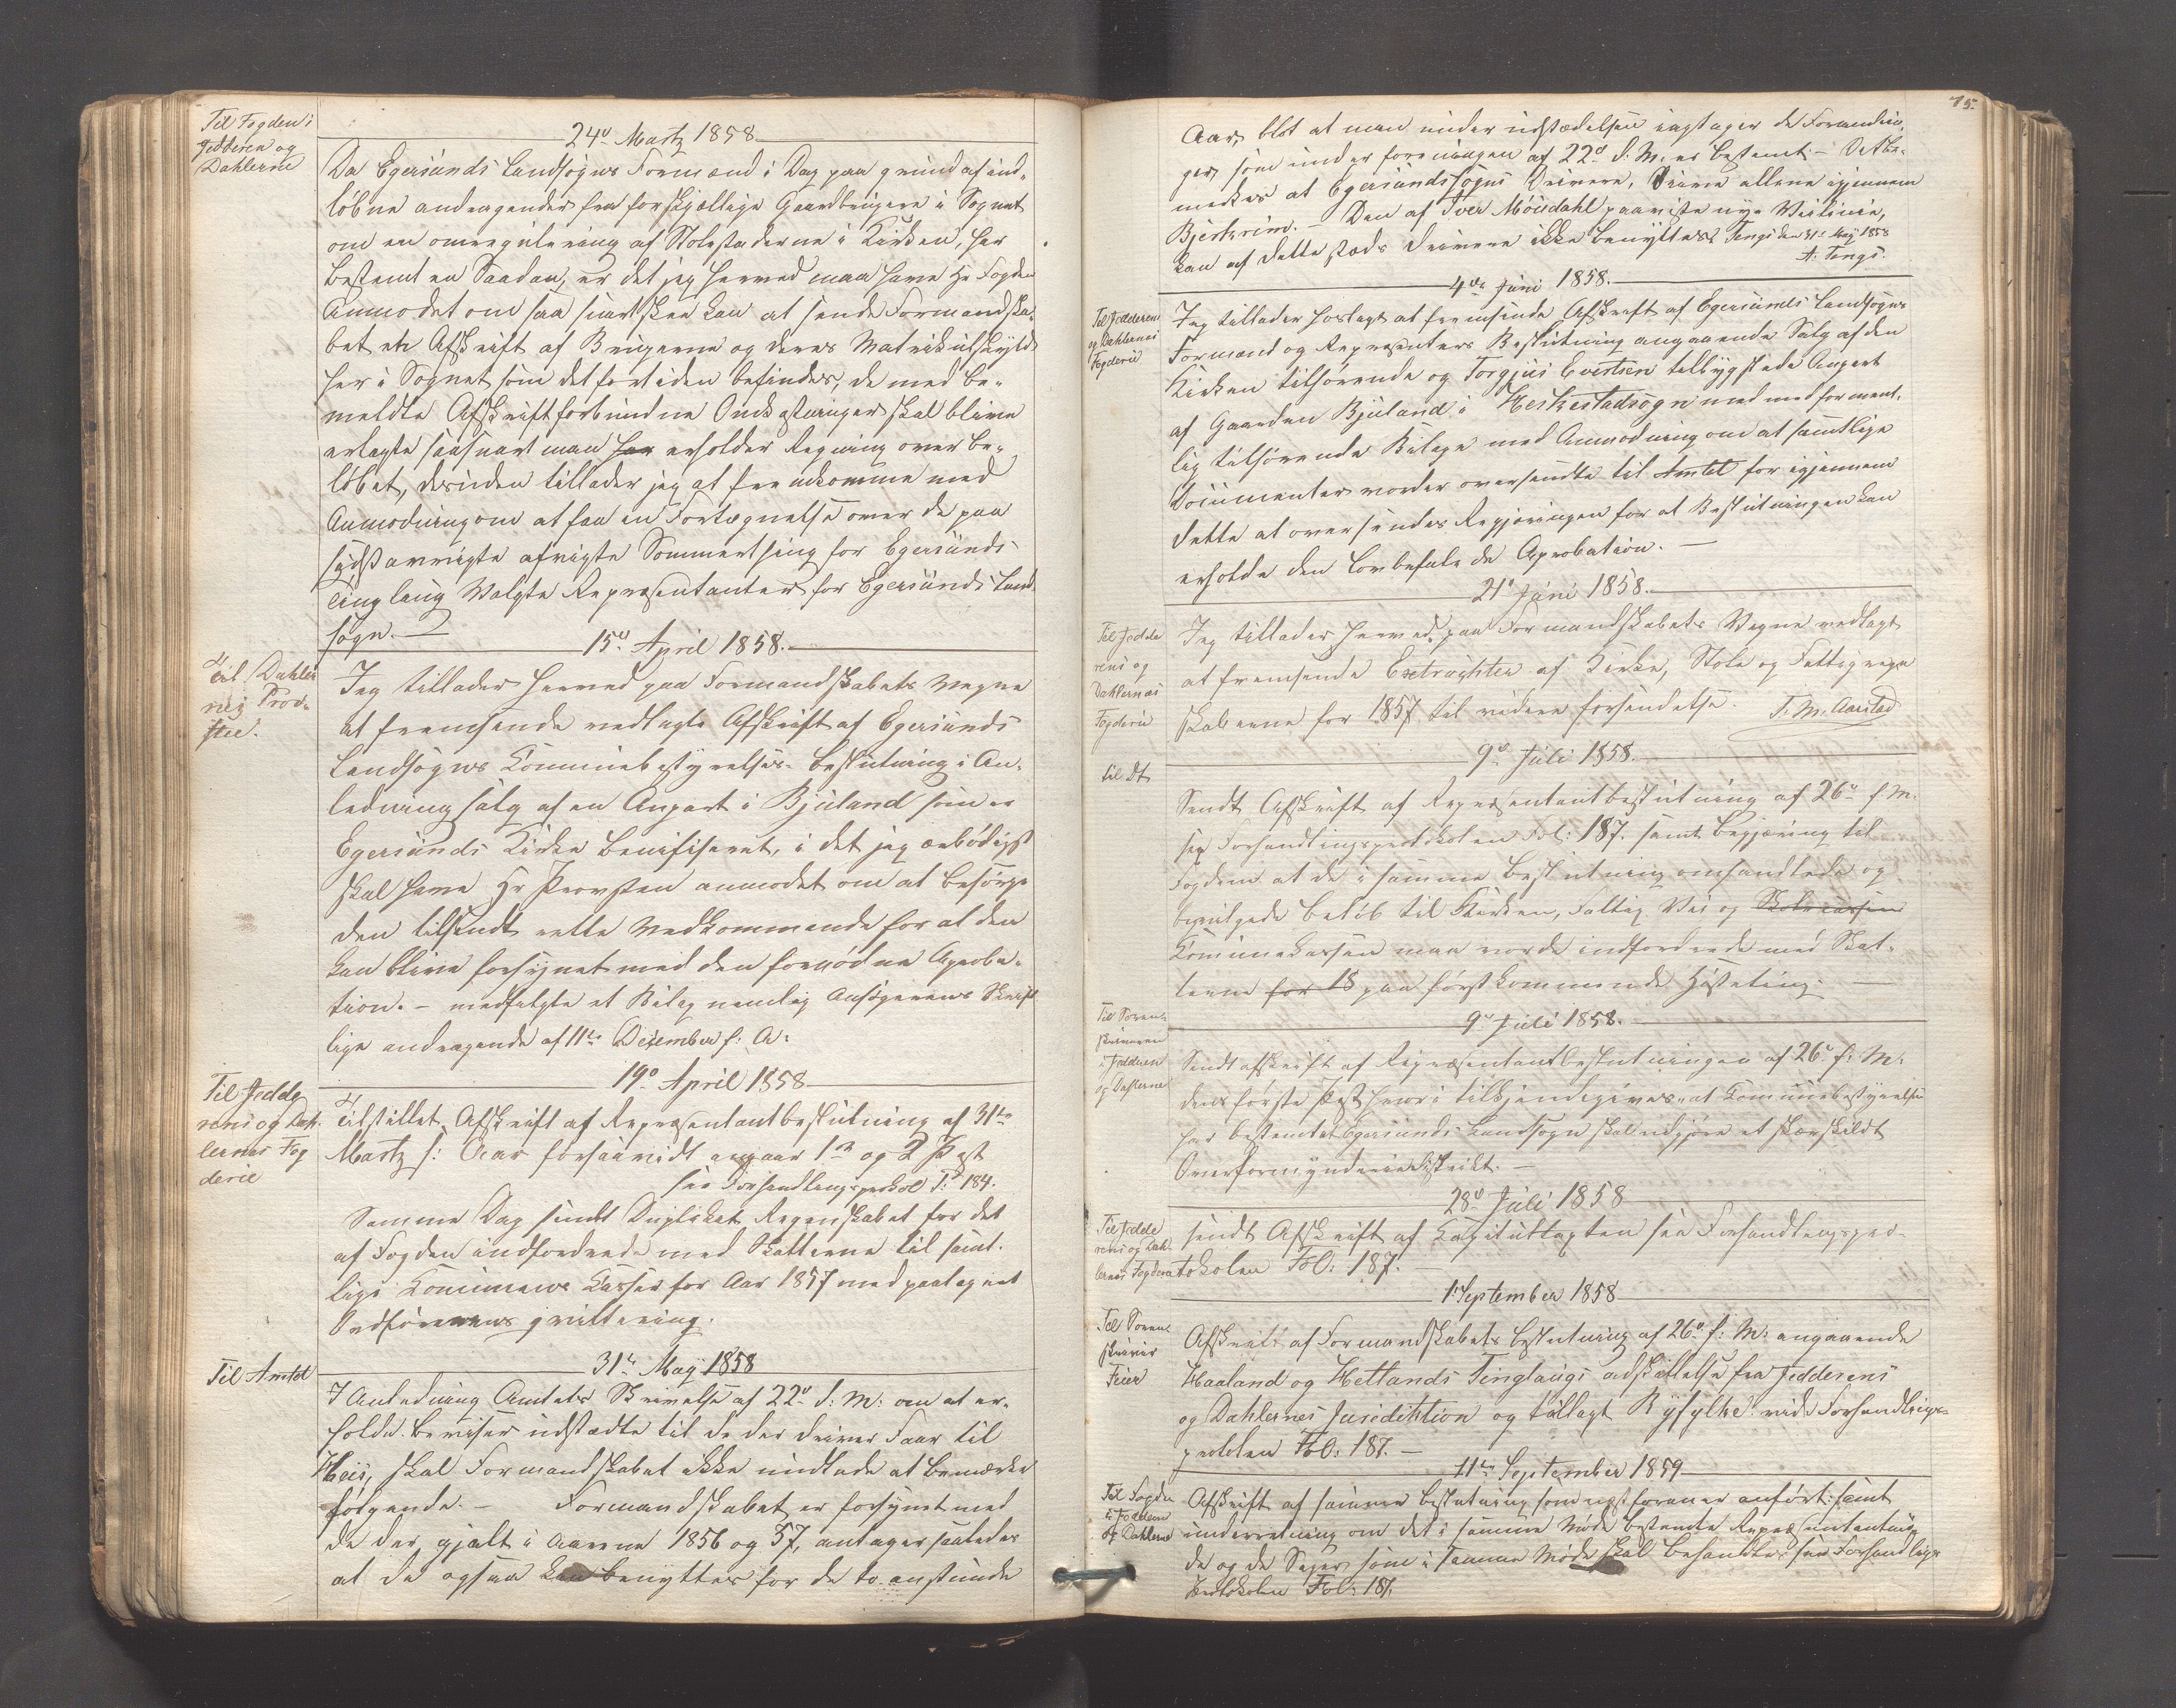 Til Fogden i
Jedderen og
Dahlerne
24de Martz 1858
Da Egersunds Landsogns Formænd i Dag paa grund af ind-
løbne andragender fra forskjællige Gaardbrugere i Sognet
om en omregulering af Stolestaderne i Kirken, har
bestemt en Saadan, er det jeg herved maa have Hr Fogden
Anmodet om saa snart skee kan at sende Formandska-
bet en Afskrift af Brugerne og deres Matrikulskyld
her i Sognet som det fortiden befindes, de med be-
meldte Afskrift forbundne Omkostninger skal blive
erlagte saasnart man har erholder Regning over be-
løbet, desuden tillader jeg at fremkomme med
Anmodning om at faa en Fortegnelse over de paa
sidst afvigte Sommerthing for Egersunds
Tinglaug Valgte Repræsentanter for Egersunds Land
sogn.
Til Dahler
nes Prov-
stie.
15de April 1858.
Jeg tillader herved paa Formandskabets Vegne
at fremsende vedlagte Afskrift af Egersunds
Landsogns Communebestyrelses-Beslutning i An-
ledning salg af en Anpart i Bjuland som er
Egersunds Kirke benifiseret, i det jeg ærbødigst
skal have Hr Provsten anmodet om at besørge
den tilsendt rette Vedkommende for at den
kan blive forsynet med den fornødne Aproba-
tion. - medfølgte et Bilag nemlig Ansøgerens Skrift
lige andragende af 11te December f: A:
Til Jedde
rens og Dah-
lernes Fog
derie
19de April 1858
Tilstillet Afskrift af Repræsentantbeslutning af 31te
Martz f: Aar forsaavidt angaar 1ste og 2 Post
see Forhandlingsprotkol F: 184.
Samme Dag sendt Duplikat Regnskabet for det
af Fogden indfordrede med Skatterne til samt-
lige Communens Kasser for Aar 1857 med paategnet
Ordførerens qvittering.
Til Amtet
31te Maÿ 1858
I Anledning Amtets Skrivelse af 22de d: M: om at er-
holde beviser udstædte til de der driver Faar til
Heis, skal Formandskabet ikke undlade at bemærke
følgende. - Formandskabet er forsynet med
de der gjalt i Aarene 1856 og 57, antager saaledes
at de ogsaa kan benyttes for de to anstunde
75.
Aar, blot at man under udstædelsen iagtager de Forandrin-
ger som under foreningen af 22de d: M. er bestemt. - Det be-
mærkes at Egersundssogns Drivere, driver allene igjennem
Bjerkrim. - Den af Iver Möisdahl paaviste nye Veilinie,
kan af dette steds Drivere ikke benyttes. Tengs den 31te Maÿ 1858
A. Tengs.
Til Jedderens
og Dahlernes
Fogderie
4de Juni 1858.
Jeg tillader hoslagt at fremsende Afskrift af Egersunds Landsogns
Formænd og Repræsentanters Beslutning angaaende Salg af den
Kirken tilhørende og Torgjus Evertsen tilbygslede Anpart
af Gaarden Bjuland i Heskestadsogn med med forment-
lig tilhørende Bilage med Anmodning om at samtlige
Documenter vorder oversendte til Amtet for igjennem
dette at oversendes Regjeringen for at Beslutningen kan
erholde den lovbefalede Aprobation. -
Til Jedde
rens og
Dahlernes
Fogderie
21de Juni 1858.
Jeg tillader herved paa Formandskabets Vegne vedlagt
at fremsende Extrachter af Kirke, Skole og Fattigregn
skaberne for 1857 til videre forsendelse. T. M. Aarstad
til Dt
9de Juli 1858.
Sendt Afskrift af Repræsentantbeslutning af 26de f: M.
see Forhandlingsprotokolen Fol: 187. samt begjæring til
Fogden at de i samme Beslutning omhandlede og
bevilgede Beløb til Kirken, Fattig Væs og Skolecassen
Communekassen maa vorde indfordrede med Skat-
terne for 18 paa førstkommende Høsteting. -
Til Soren-
skriveren
i Jedderen
og Dahlerne
9de Juli 1858.
Sendt afskrift af Repræsentantbeslutningen af 26de f: M.
dens første Post hvori tilkjendegives at Communebestyrelsen
har bestemt at Egersunds Landsogn skal udgjøre et særskildt
Overformynderie Distrikt. -
Til Jedde
rens og Dah-
lernes Fogderie
28de Juli 1858
sendt Afskrift af Kapiteltaxten see Forhandlingspro-
tokolen Fol: 187. -
Til Soren-
skriver
Feier
1 September 1858
Afskrift af Formandskabets beslutning af 26de f: M: angaaende
Haaland og Hetlands Tinglaugs adskillelse fra Jedderens
og Dahlernes Jurisdiktion og tillagt Ryfylke vide Forhandlings-
protolen Fol: 187. -
Til Fogden
i Jedderen
og Dahlerne
11te September 1859
Afskrift af samme beslutning som næst foran er anført: samt
underretning om det i samme Møde bestemte Repræsentantmø-
de og de Sager som i samme Møde skal behandles see Forhandlings
Protokolen Fol: 187.